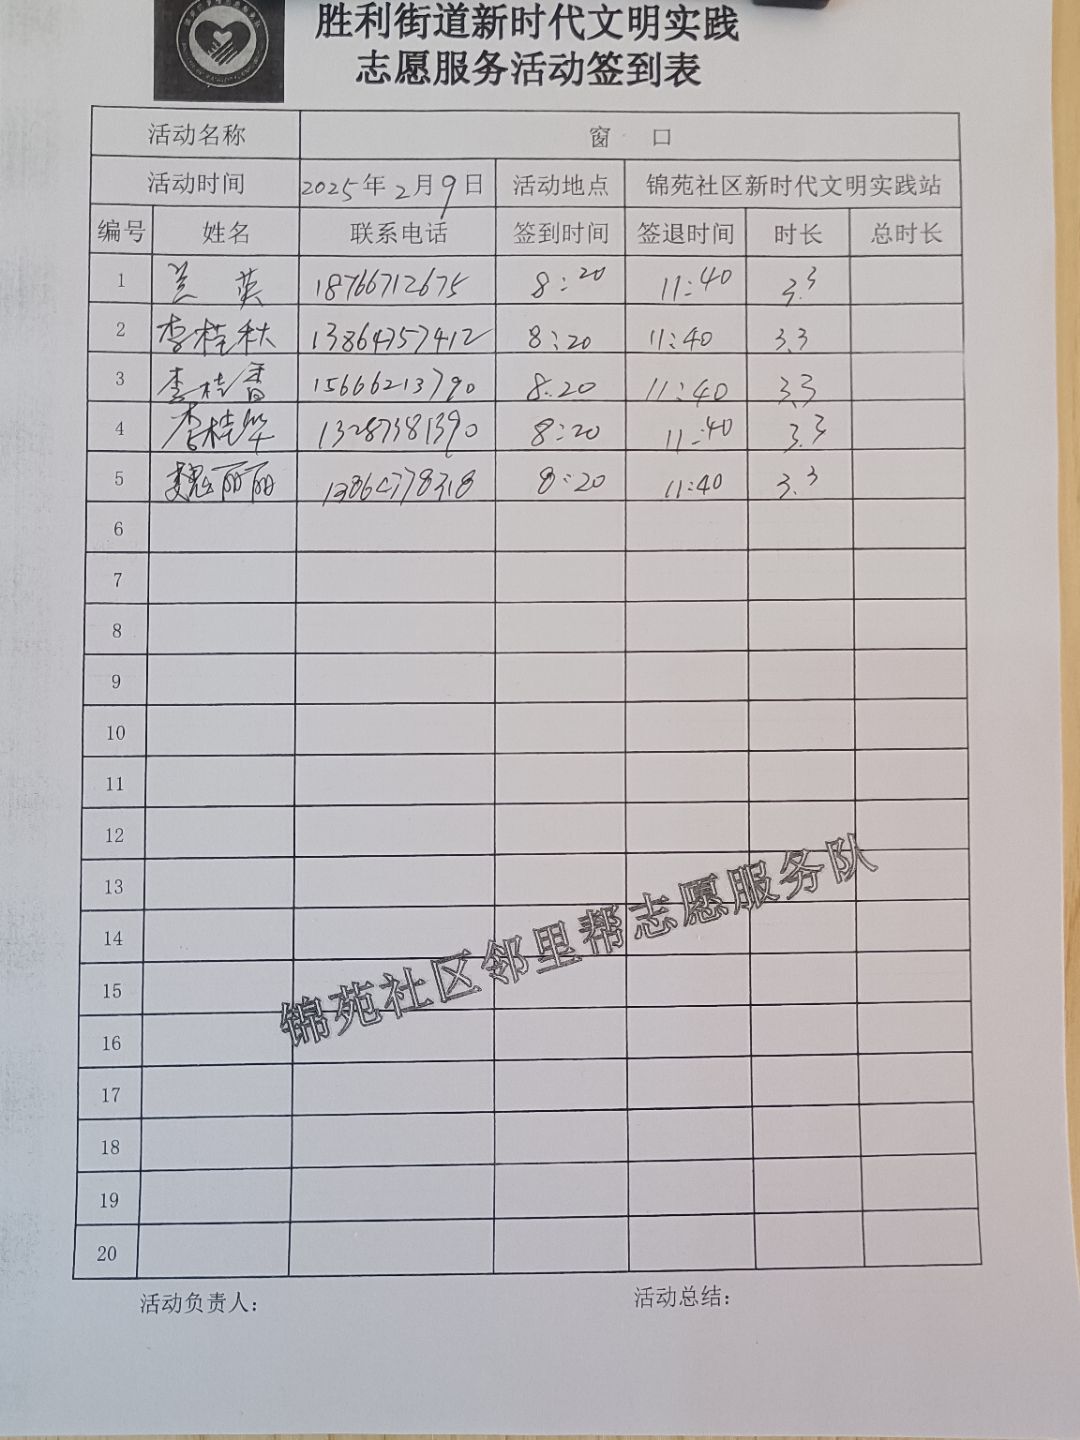 胜利街道新时代文明实践
志愿服务活动签到表
活动名称 窗 口
活动时间 2025年2月9日 活动地点 锦苑社区新时代文明实践站
编号 姓名 联系电话 签到时间 签退时间 时长 总时长
1 兰英 18766712675 8:20 11:40 3.3
2 李桂秋 13864757412 8:20 11:40 3.3
3 李桂香 15666213790 8.20 11:40 3.3
4 李桂华 13287381390 8:20 11:40 3.3
5 魏丽丽 13864778318 8:20 11:40 3.3
6
7
8
9
10
11
12
13
14
15
16
17
18
19
20
锦苑社区邻里帮志愿服务队
活动负责人: 活动总结: